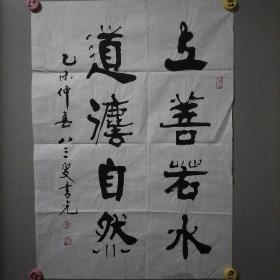 上善若水
道法自然
乙未仲春八三叟书光